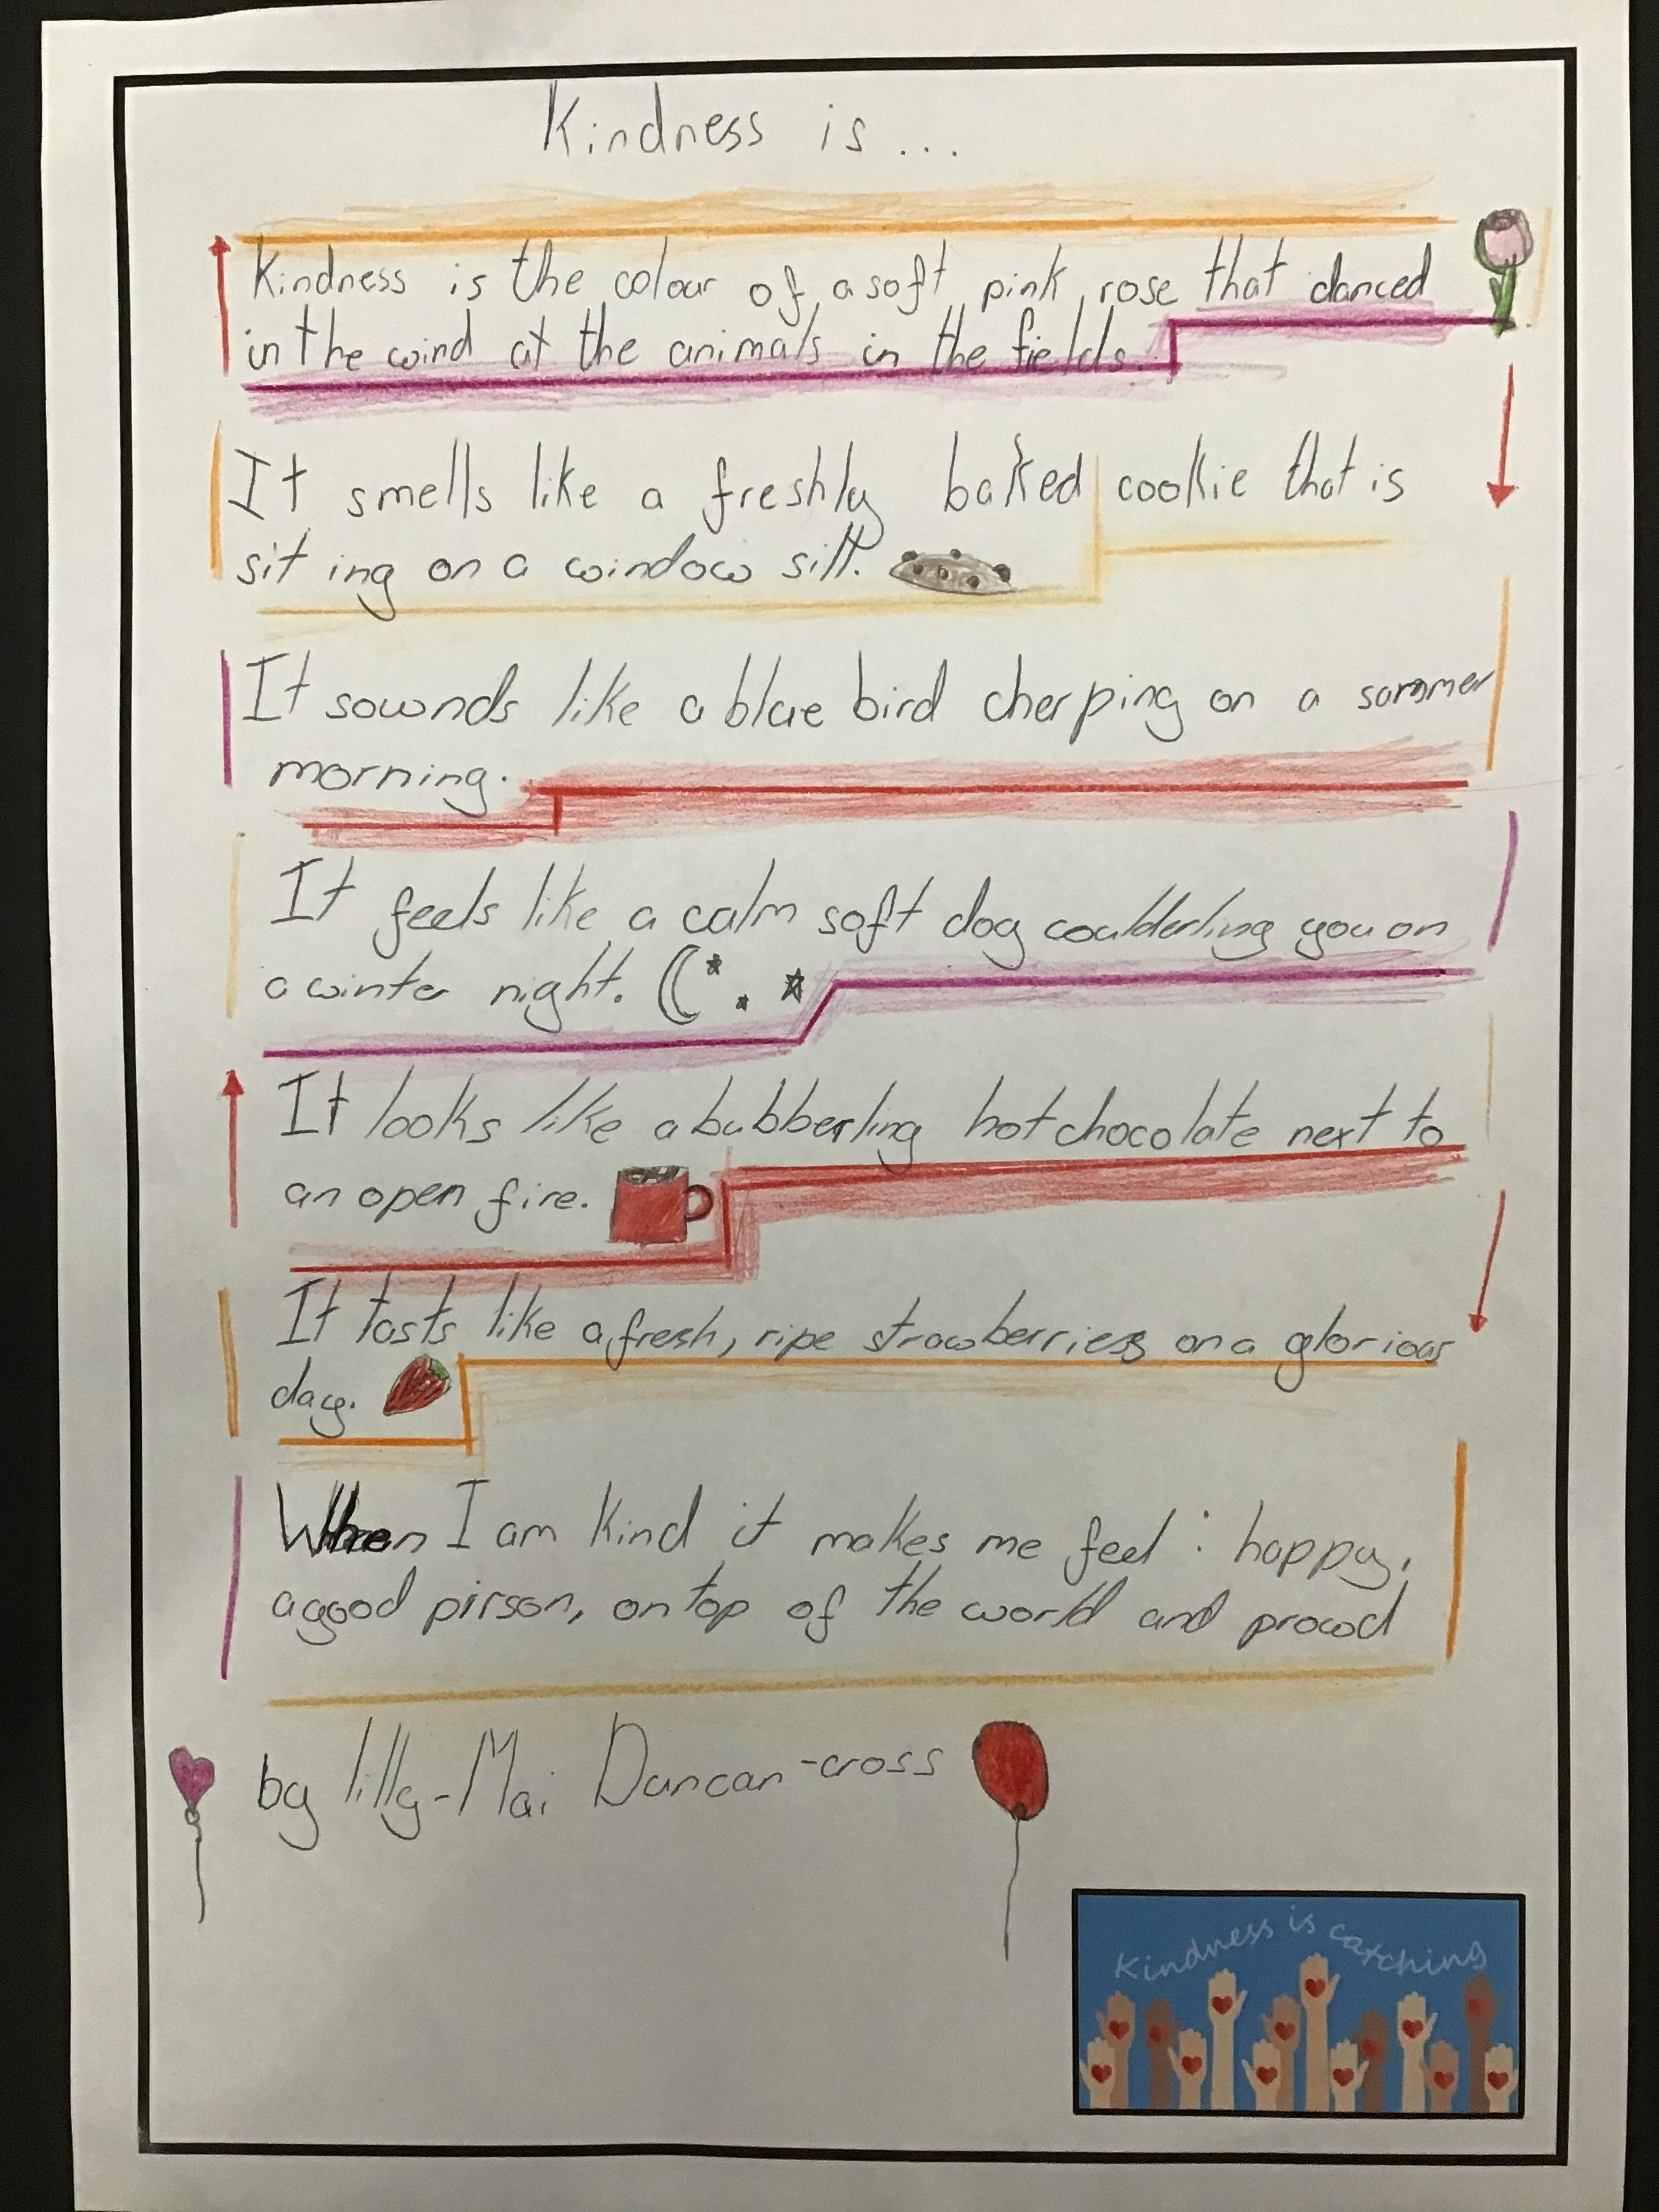 Kindness is...
Kindness is the colour of a soft pink rose that danced
in the wind at the animals in the fields.
It smells like a freshly baked cookie that is
sit ing on a window sill.
It sownds like a blue bird cherping on a sommer
morning.
It feels like a calm soft dog coulderling you on
a winter night.
It looks like a bubberling hot chocolate next to
an open fire.
It tasts like a fresh, ripe strawberries on a glorious
day.
When I am kind it makes me feel : happy,
a good pirson, on top of the world and prowd
by lilly-Mai Duncan-cross
Kindness is catching